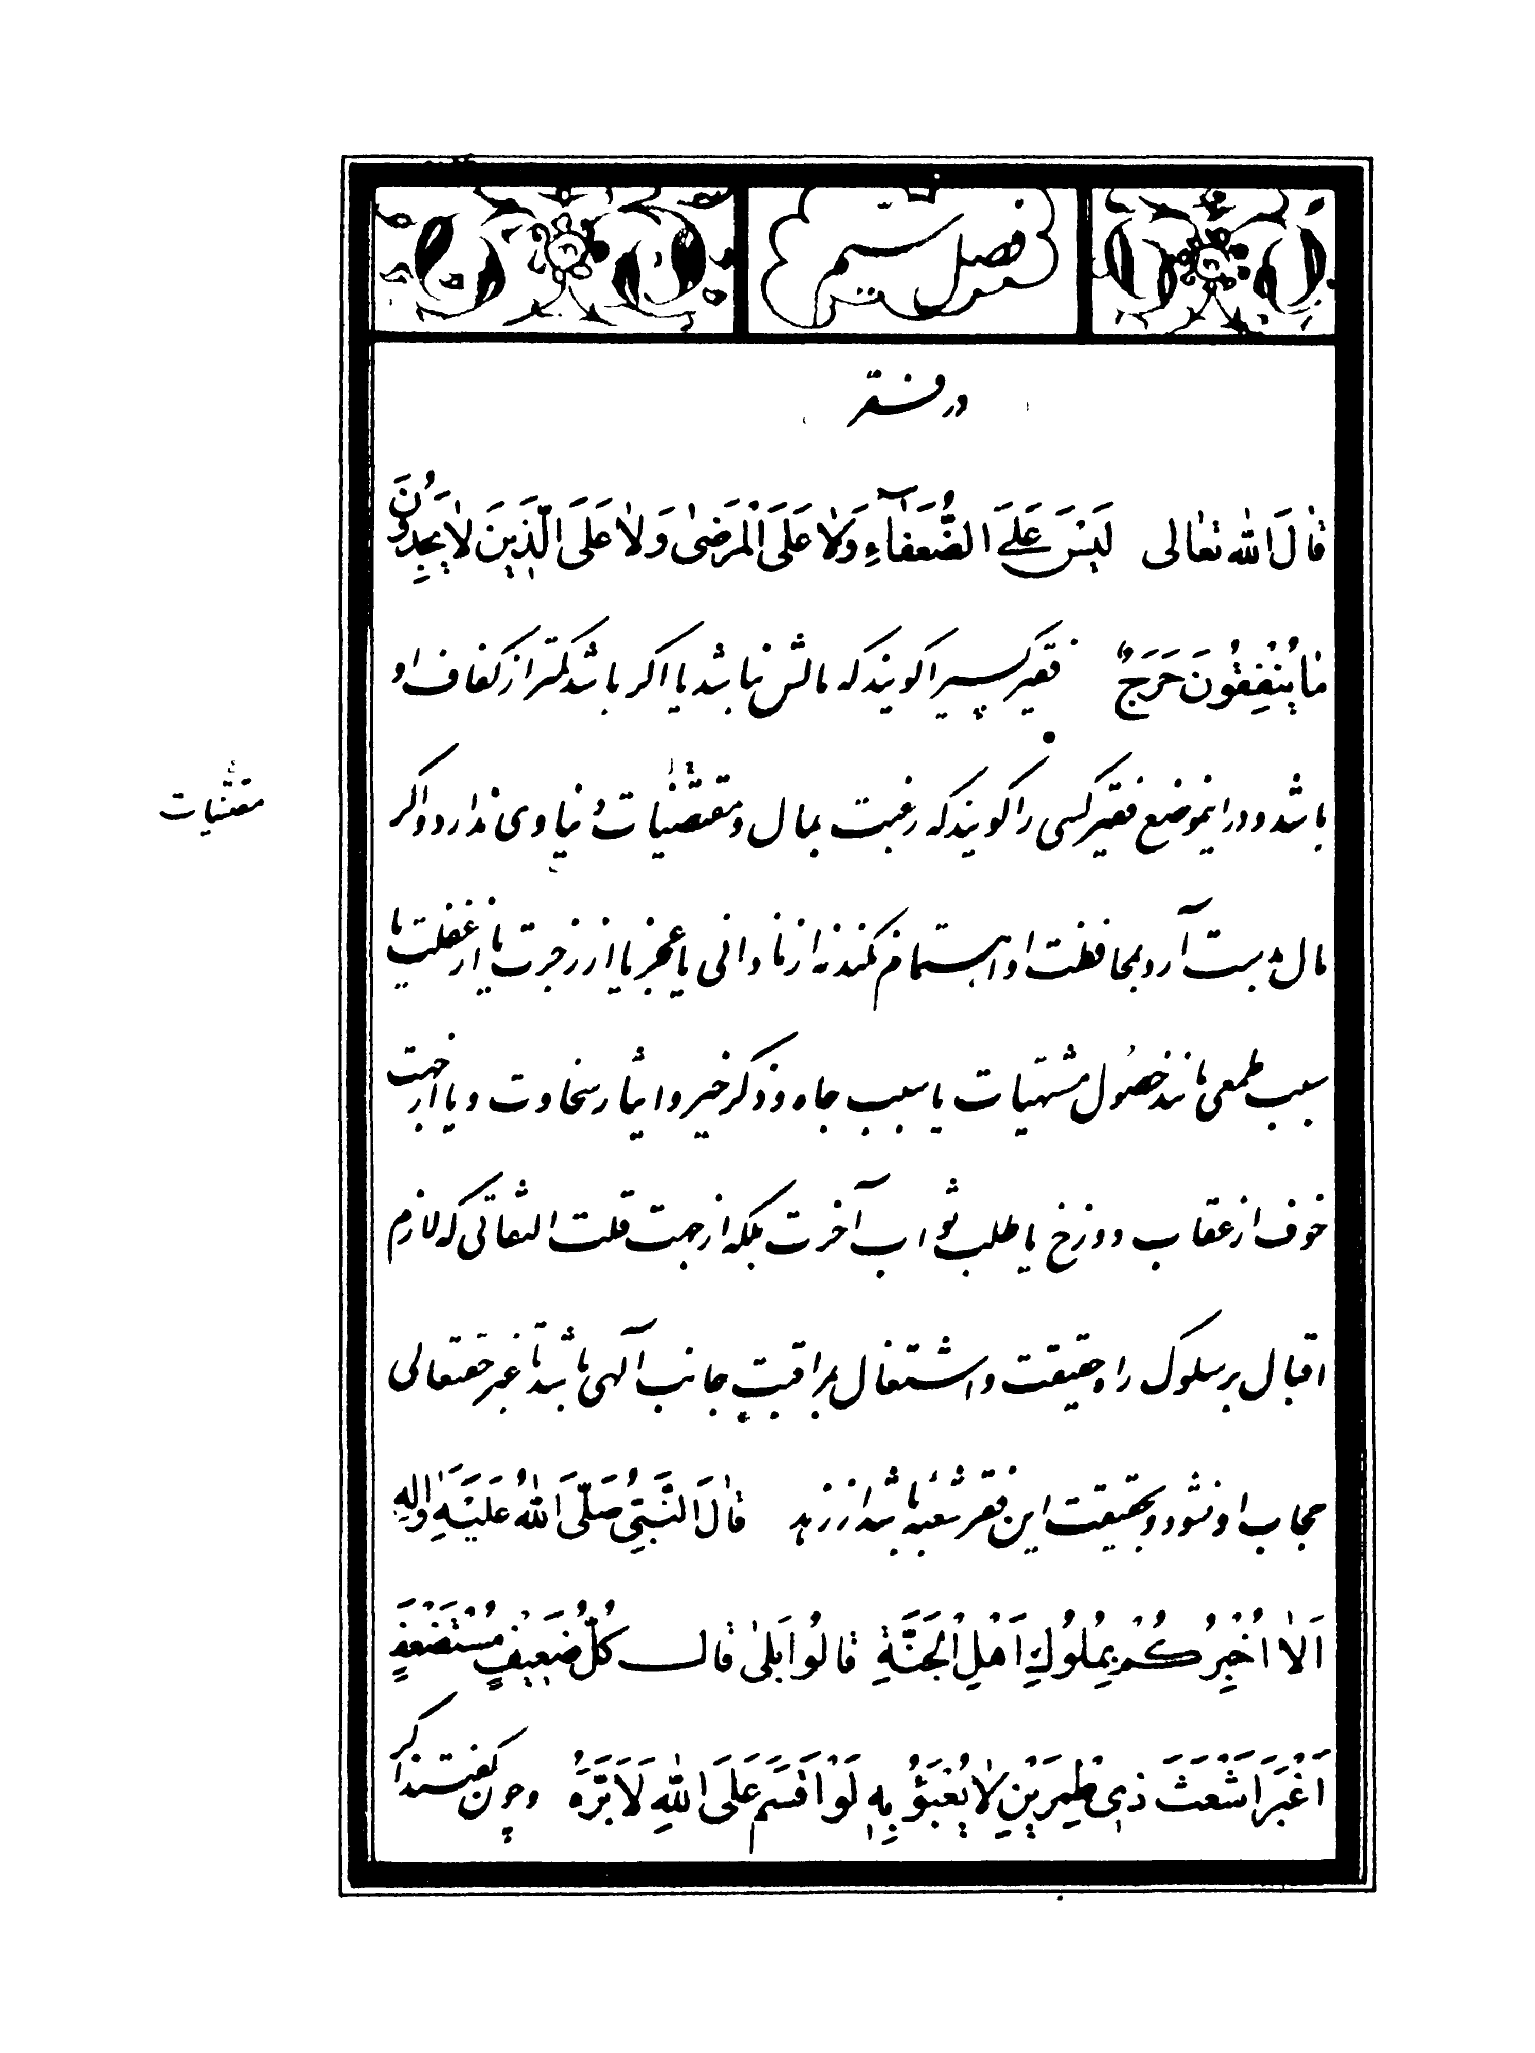 فصل سیم
در فقر
قالَ الله تعالی لَیْسَ عَلَی الضُّعَفآءِ وَلا عَلَی الْمَرضیٰ وَلا عَلَی الَّذینَ لا یَجِدُونَ
ما یُنْفِقُونَ حَرَجٌ فقیر کسیرا گویند که مالش نباشد یا اگر باشد کمتر از کفاف او
باشد و در اینموضع فقیر کسی را گویند که رغبت بمال و مقتضیات دنیاوی ندارد و اگر
مقتنیات
مال بدست آرد بمحافظت او اهتمام نکند نه از نادانی یا عجز یا از زجرت یا از غفلت یا
سبب طمعی مانند حصول مشتهیات یا سبب جاه و ذکر خیر و ایثار سخاوت و یا از جهت
خوف از عقاب دوزخ یا طلب ثواب آخرت بلکه از جهت قلت التفاتی که لازم
اقبال بر سلوک راه حقیقت و اشتغال بمراقبت جانب آلهی باشد تا غیر حقتعالی
حجاب او نشود و بحقیقت این فقر شعبه باشد از زهد قالَ النَّبِیُّ صَلَّی اللهُ عَلَیْهِ وَالِهِ
اَلا اُخْبِرُکُمْ بِمُلُوكِ اَهْلِ الْجَنَّةِ قالُوا بَلیٰ قال کُلُّ ضَعیفٍ مُسْتَضْعَفٍ
اَغْبَرَ اَشْعَثَ ذی طِمرَیْنِ لا یُعْبَؤُ بِهِ لَوْ اَقْسَمَ عَلَی اللهِ لَاَبَرَّهُ و چون گفتند اگر